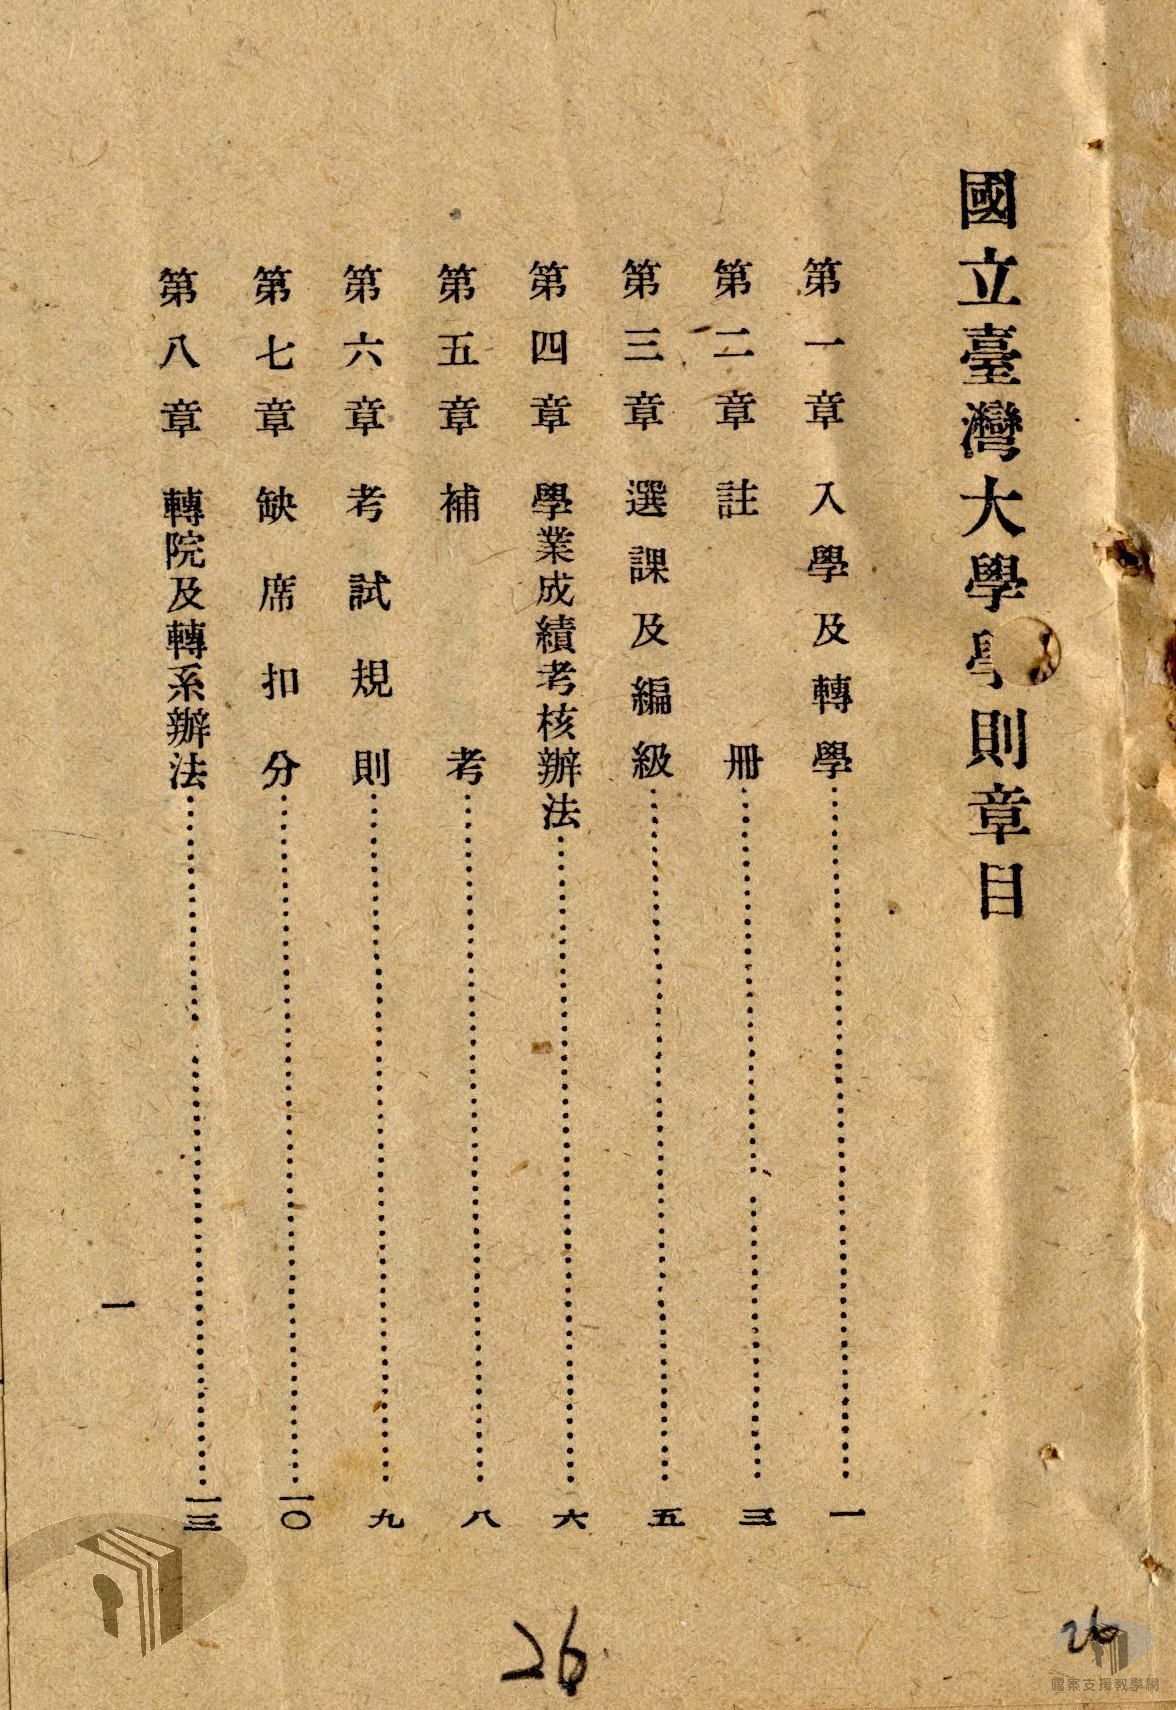 國立臺灣大學學則章目
第一章 入學及轉學……一
第二章 註冊……三
第三章 選課及編級……五
第四章 學業成績考核辦法……六
第五章 補考……八
第六章 考試規則……九
第七章 缺席扣分……一〇
第八章 轉院及轉系辦法……一三
一
26
26
檔案支援教學網